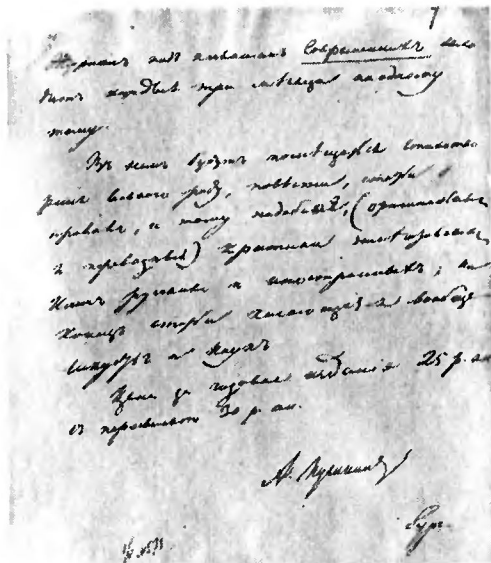 Журналъ подъ названіемъ Современникъ
каждые три мѣсяца по одному
тому.
Въ немъ будутъ помѣщаться
рода, повѣсти, статьи о
нравахъ, и тому подобное, (оригинальныя
и переводныя) критики
Книгъ русскихъ и иностранныхъ; на
Конецъ статьи касающіяся вообще
искуствъ и Наукъ
Цена за годовое изданіе 25 р. ас
съ пересылкою 30 р. ас.
А. Пушкинъ